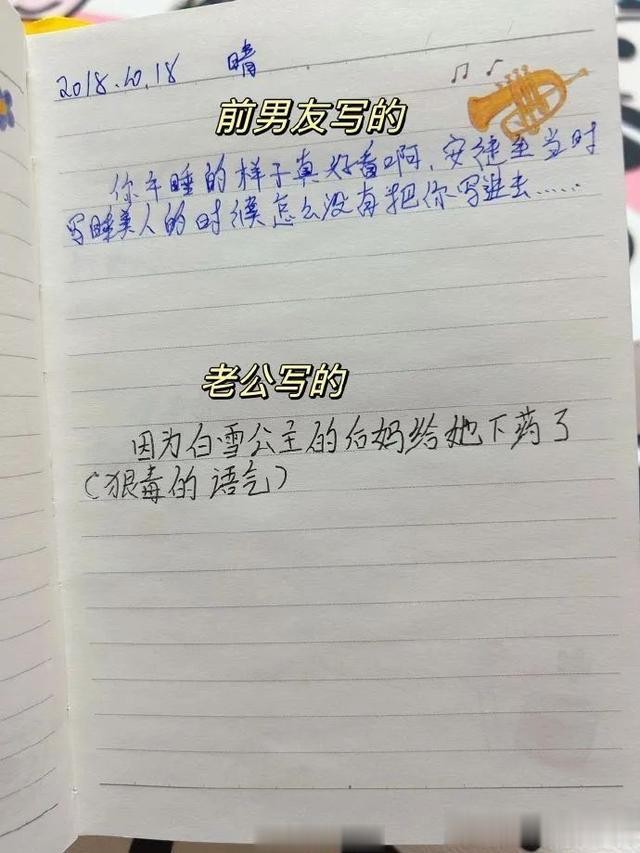 2018.10.18 晴
前男友写的
你午睡的样子真好看啊,安徒生当时
写睡美人的时候怎么没有把你写进去……
老公写的
因为白雪公主的后妈给她下药了
(狠毒的语气)